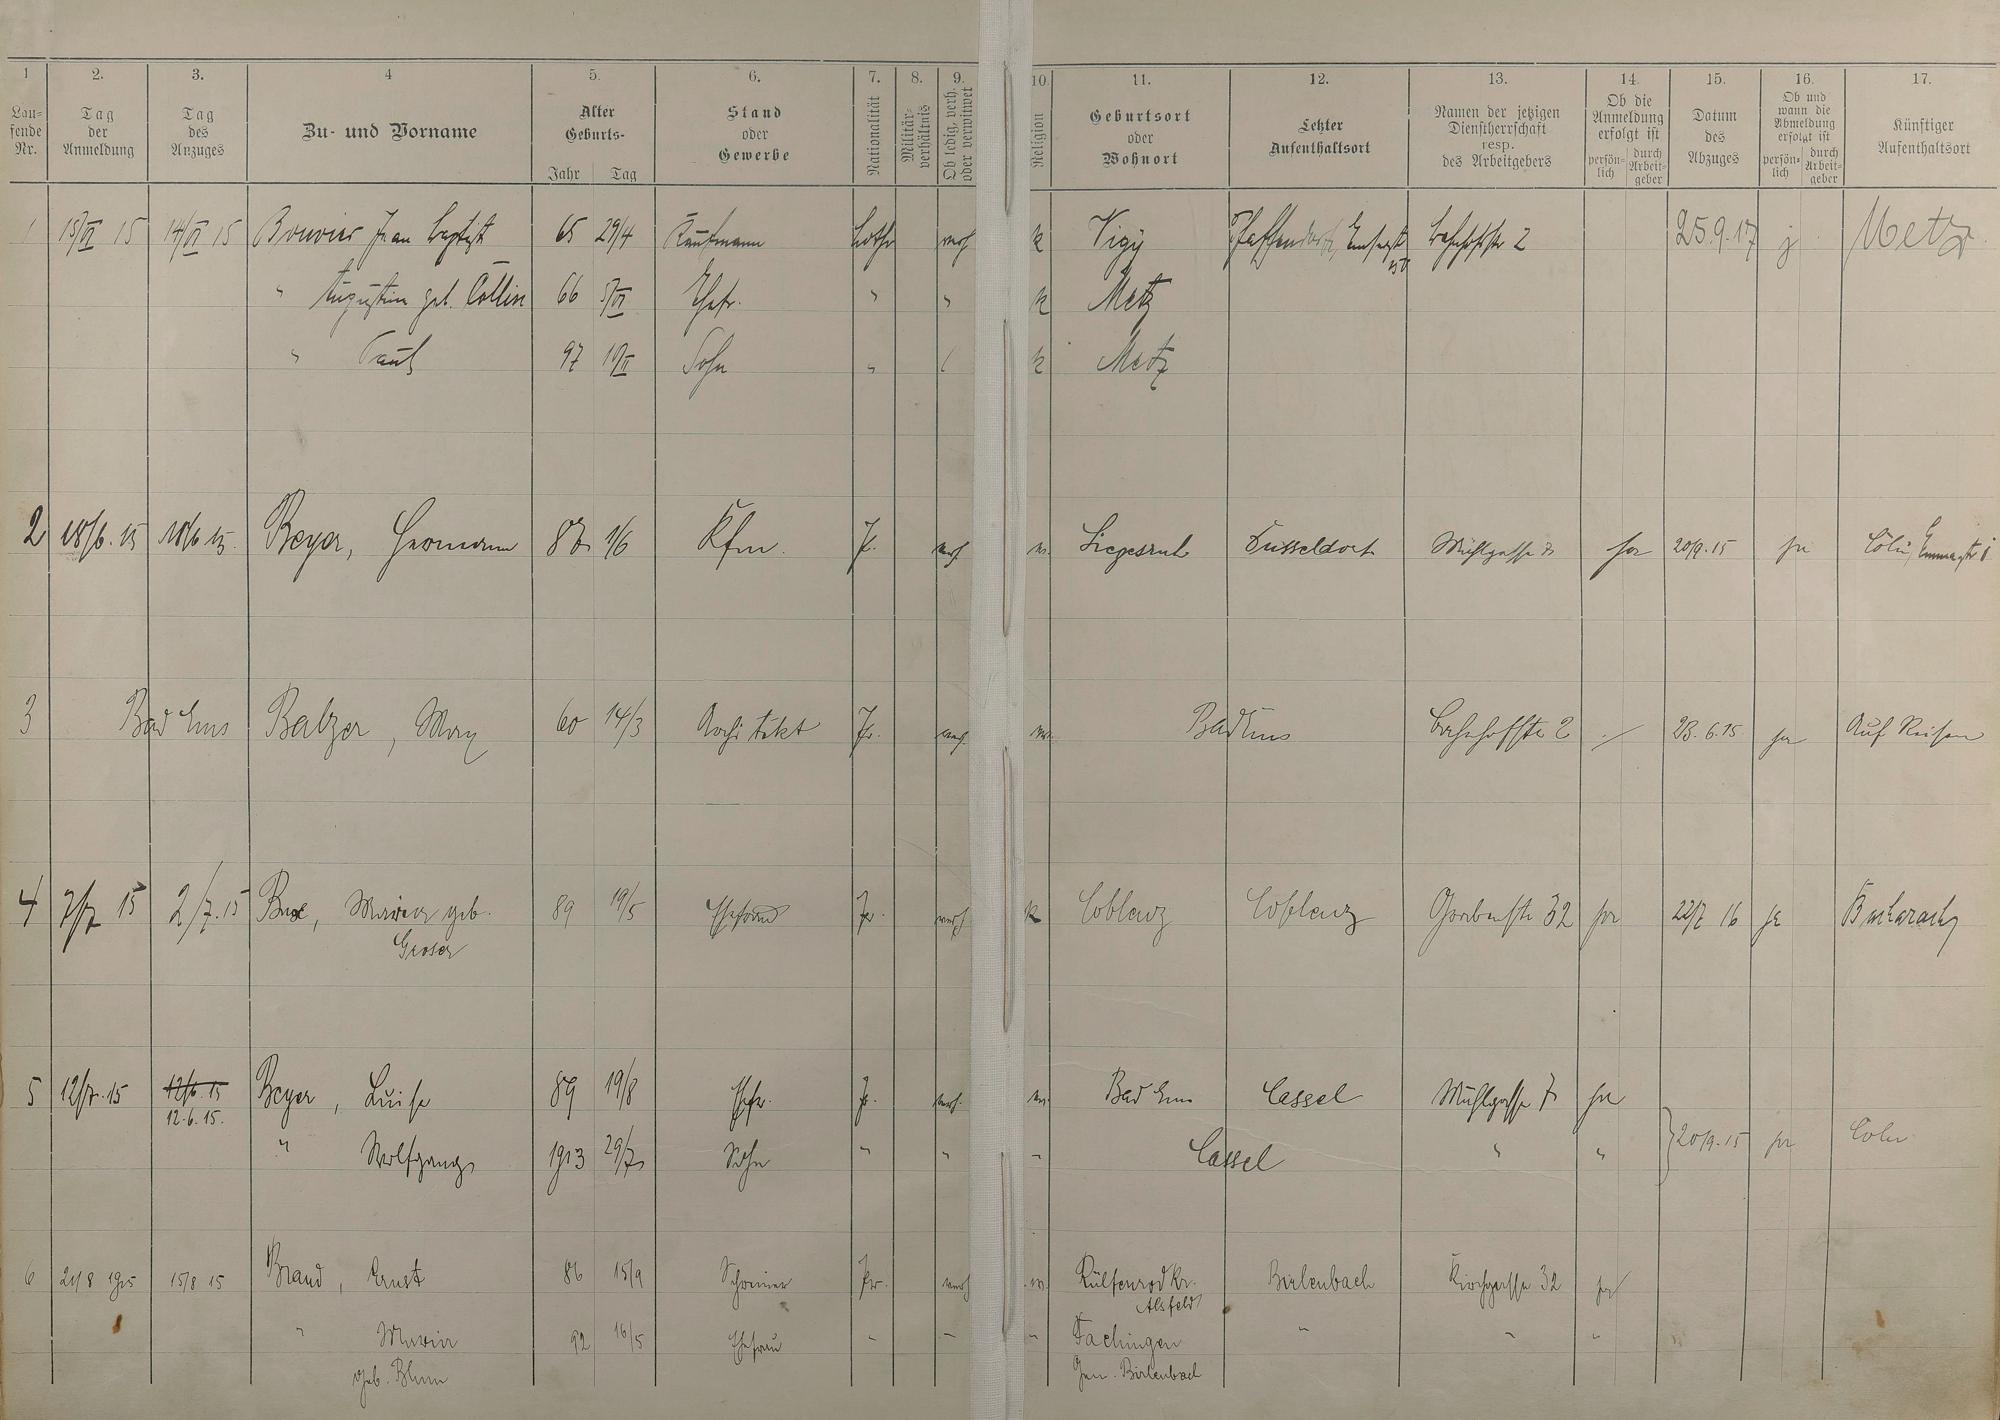 1 2. 3. 4 5. 6. 7. 8. 9. 10. 11. 12. 13. 14. 15. 16. 17.
Lau=
fende
Nr.
Tag
der
Anmeldung
Tag
des
Anzuges
Zu- und Vorname
Alter
Geburts-
Jahr Tag
Stand
oder
Gewerbe
Nationalität
Militär-
verhältnis
Ob ledig, verh.
oder verwitwet
Religion
Geburtsort
oder
Wohnort
Letzter
Aufenthaltsort
Namen der jetzigen
Dienstherrschaft
resp.
des Arbeitgebers
Ob die
Anmeldung
erfolgt ist
persön-
lich
durch
Arbeit-
geber
Datum
des
Abzuges
Ob und
wann die
Abmeldung
erfolgt ist
persön-
lich
durch
Arbeit-
geber
Künftiger
Aufenthaltsort
1 15/VI 15 14/VI 15 Bouvier Jean Baptist 65 29/4 Kaufmann Lothr verh k Vigy Pfaffendorf, Bahnhofstr 2 25.9.17 j Metz
" Augustine geb. Collin 66 Ehefr. " " k Metz
" Paul 97 Sohn " l k Metz
2 18/6. 15 18/6 15. Beyer, Hermann 87 1/6 Kfm. Pr. verh Düsseldorf Mühlgasse 7 ja 20/9.15 ja Cöln,
3 Bad Ems Balzer, Max 60 14/3 Architekt Pr. verh. Bad Ems Bahnhofstr 2 23.6.15 ja Auf Reisen
4 2/7 15 2/7.15 Bux, Maria geb. 89 19/5 Ehefrau Pr. verh k Coblenz Coblenz Grabenstr 32 ja 22/7 16 ja Bacharach
Groser
5 12/7.15 12/6.15 Beyer, Luise 89 19/8 Ehefr. Pr. verh. Bad Ems Cassel Mühlgasse 7 ja
12.6.15.
" Wolfgang 1913 29/7 Sohn " " " Cassel " " 20/9.15 ja Cöln
6 21/8 1915 15/8 15 Brand, Ernst 86 15/9 Schreiner Pr. verh Rülfenrod Kr. Birlenbach Kirchgasse 32 ja
Alsfeld
" Maria 92 16/5 Ehefrau " " " Fachingen " " "
geb. Blum Gem. Birlenbach